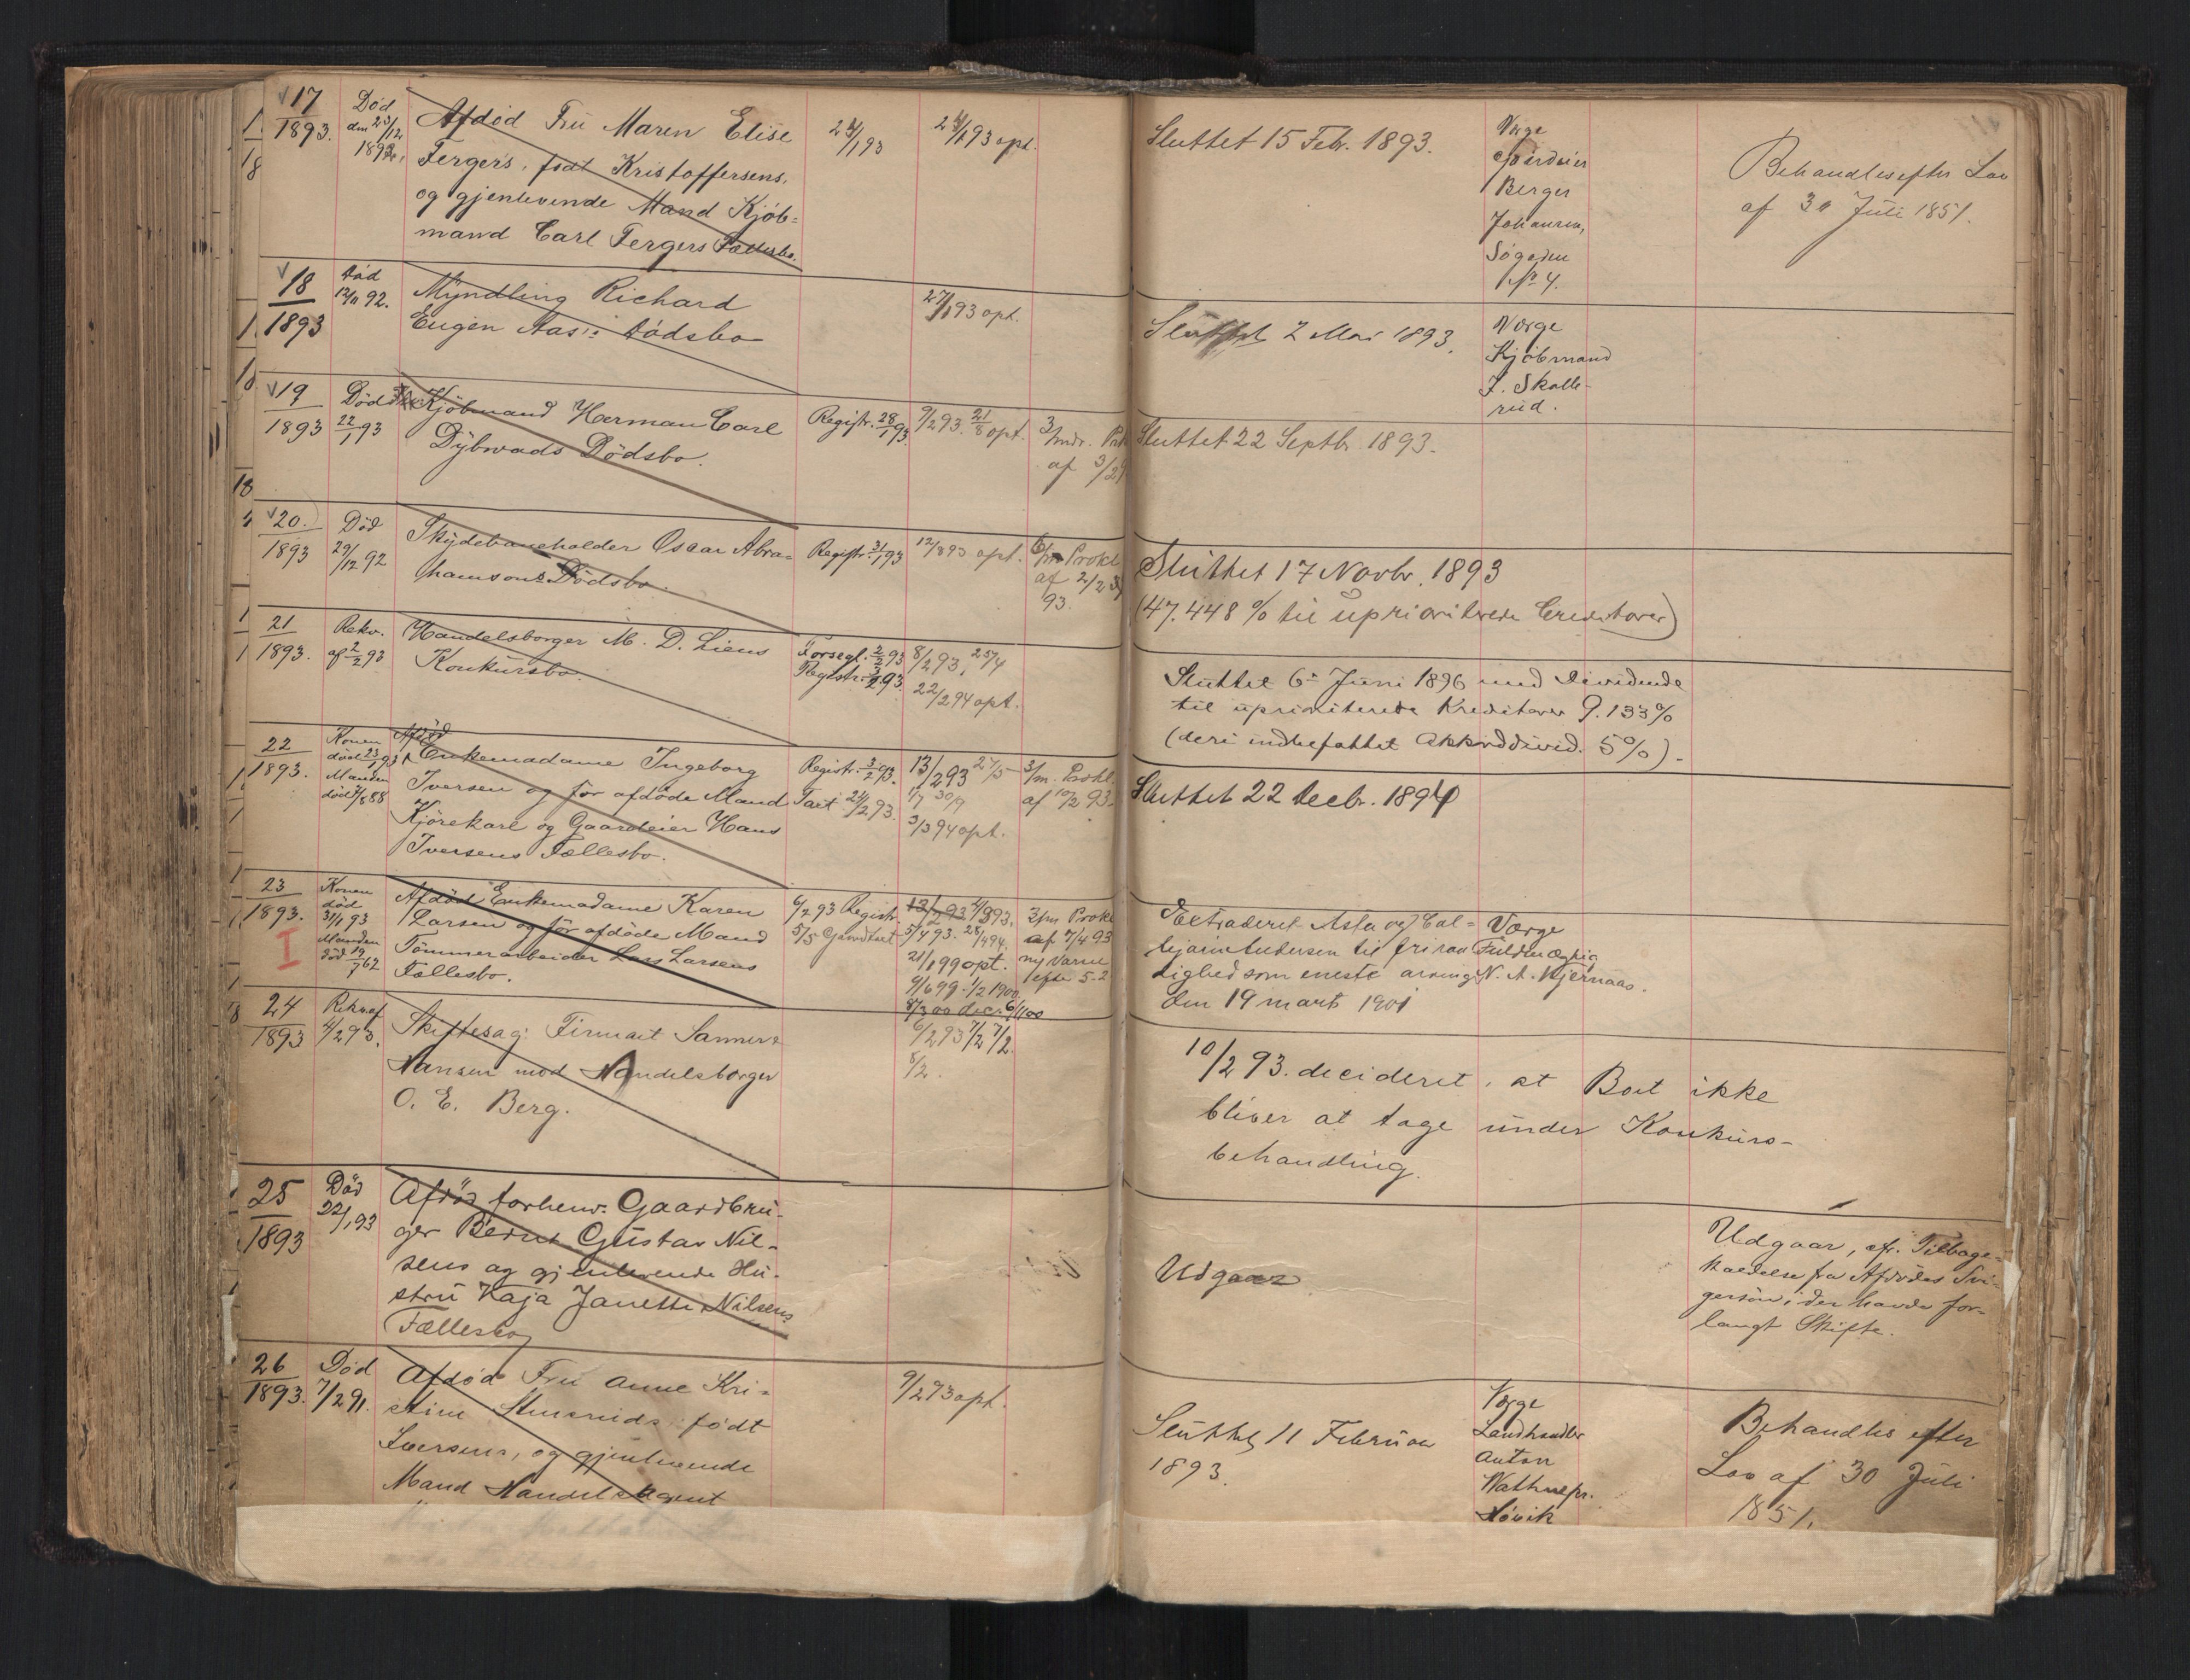 17
1893.
Død
den 23/12
1892.
Afdød Fru Maren Elise
Fergers, født Kristoffersens,
og gjenlevende Mand Kjöb-
mand Carl Fergers Fællesbo.
24/1 93
24/1 93 opt.
Sluttet 15 Febr. 1893.
Værge
Gaardeier
Berger
Johansen,
Søgaden
No 4.
Behandles efter Lov
af 30 Juli 1851.
18
1893
Død
12/11 92.
Myndling Richard
Eugen Aas's Dødsbo
27/1 93 opt.
Sluttet 2 Mai 1893.
Værge
Kjøbmand
J. Skolle-
rud.
19
1893
Død
22/1 93
Kjöbmand Herman Carl
Dybwads Dödsbo.
Registr. 28/1 93.
9/2 93. 21/8 opt.
3/mdr. Prk
af 3/2
Sluttet 22 Septbr. 1893.
20.
1893
Död
29/12 92
Skydebaneholder Oscar Abra-
hamsons Dödsbo.
Registr. 31/1 93
12/8 93 opt.
6/m Prokl
af 2/2
93.
Sluttet 17 Novbr. 1893
(47.448 % til uprioriterede Creditorer)
21
1893.
Rekv.
af 2/2 93
Handelsborger M. D. Liens
Konkursbo.
Forsegl. 2/2 93
Registr. 3/2 93.
8/2 93, 25/4
22/2 94 opt.
Sluttet 6te Juni 1896 med Dividende
til uprioriterede Kreditorer 9.133%
(deri indbefattet Akkorddivid. 5%).
22
1893.
Konen
død 23/1 93
Manden
död 7/8 88
Afdöd
Enkemadame Ingeborg
Iversen og för afdöde Mand
Kjörekarl og Gaardeier Hans
Iversens Fællesbo.
Registr. 3/2 93.
Taxt 24/2 93.
13/2 93 27/5
1/7 30/9
3/3 94 opt.
3/m. Prokl.
af 10/2 93.
Sluttet 22 Decbr. 1894
23
1893.
I
Konen
död
31/1 93
Manden
död 19/9 62
Afdöd Enkemadame Karen
Larsen og för afdöde Mand
Tömmerarbeider Lars Larsens
Fællesbo.
6/2 93 Registr.
5/5 Gaardtaxt
13/2 93 4/3 93.
5/4 93. 28/4 94.
21/1 99 opt.
9/6 99. 1/2 1900.
8/3 00 deci. 6/11 00
3/m Prokl
af 7/4 93
ny Varsel
efter 5-2
Extraderet Asta og Cal-
bjørn Andersen til fri raa-
dighed som eneste arving
den 19 marts 1901
Værge
Fuldmægtig
N. A. Kjernaas.
24
1893
Rekv. af
4/2 93.
Skiftesag: Firmaet Sanner &
Hansen mod Handelsborger
O. E. Berg.
6/2 93 7/2 7/2.
8/2.
10/2 93. decideret, at Boet ikke
bliver at tage under Konkurs-
behandling.
25
1893
Död
22/1 93
Afdöd forhenv. Gaardbru-
ger Bernt Gustav Nil-
sens og gjenlevende Hu-
stru Kaja Janette Nilsens
Fællesbo
Udgaar
Udgaar, efr. Tilbage-
kaldelse fra Afdödes Svi-
gersön, der havde for-
langt Skifte.
26
1893.
Död
7/2 91.
Afdöd Fru Anne Kri-
stine født
Iversens, og gjenlevende
Mand Handelsagent
9/2 93 opt.
Sluttet 11 Februar
1893.
Værge
Landhandler
Anton
Wathne pr.
Høvik
Behandles efter
Lov af 30 Juli
1851.